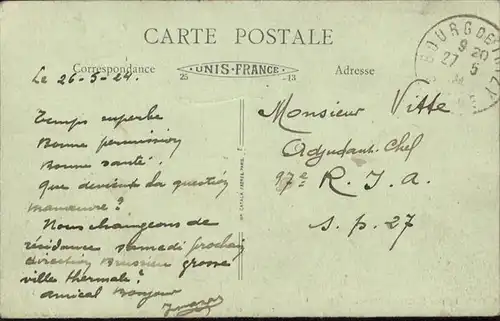 CARTE POSTALE
Correspondance
UNIS-FRANCE
25 13
Adresse
BOURG DE
9 20
27 5
Le 26-5-24.
Temps superbe
Bonne permission
Bonne santé.
Que devient la question
manœuvre ?
Nous changeons de
résidence samedi prochain
direction grosse
ville thermale ?
amical Bonjour
Monsieur Vitte
Adjudant-Chef
97e R. I. A.
S. P. 27